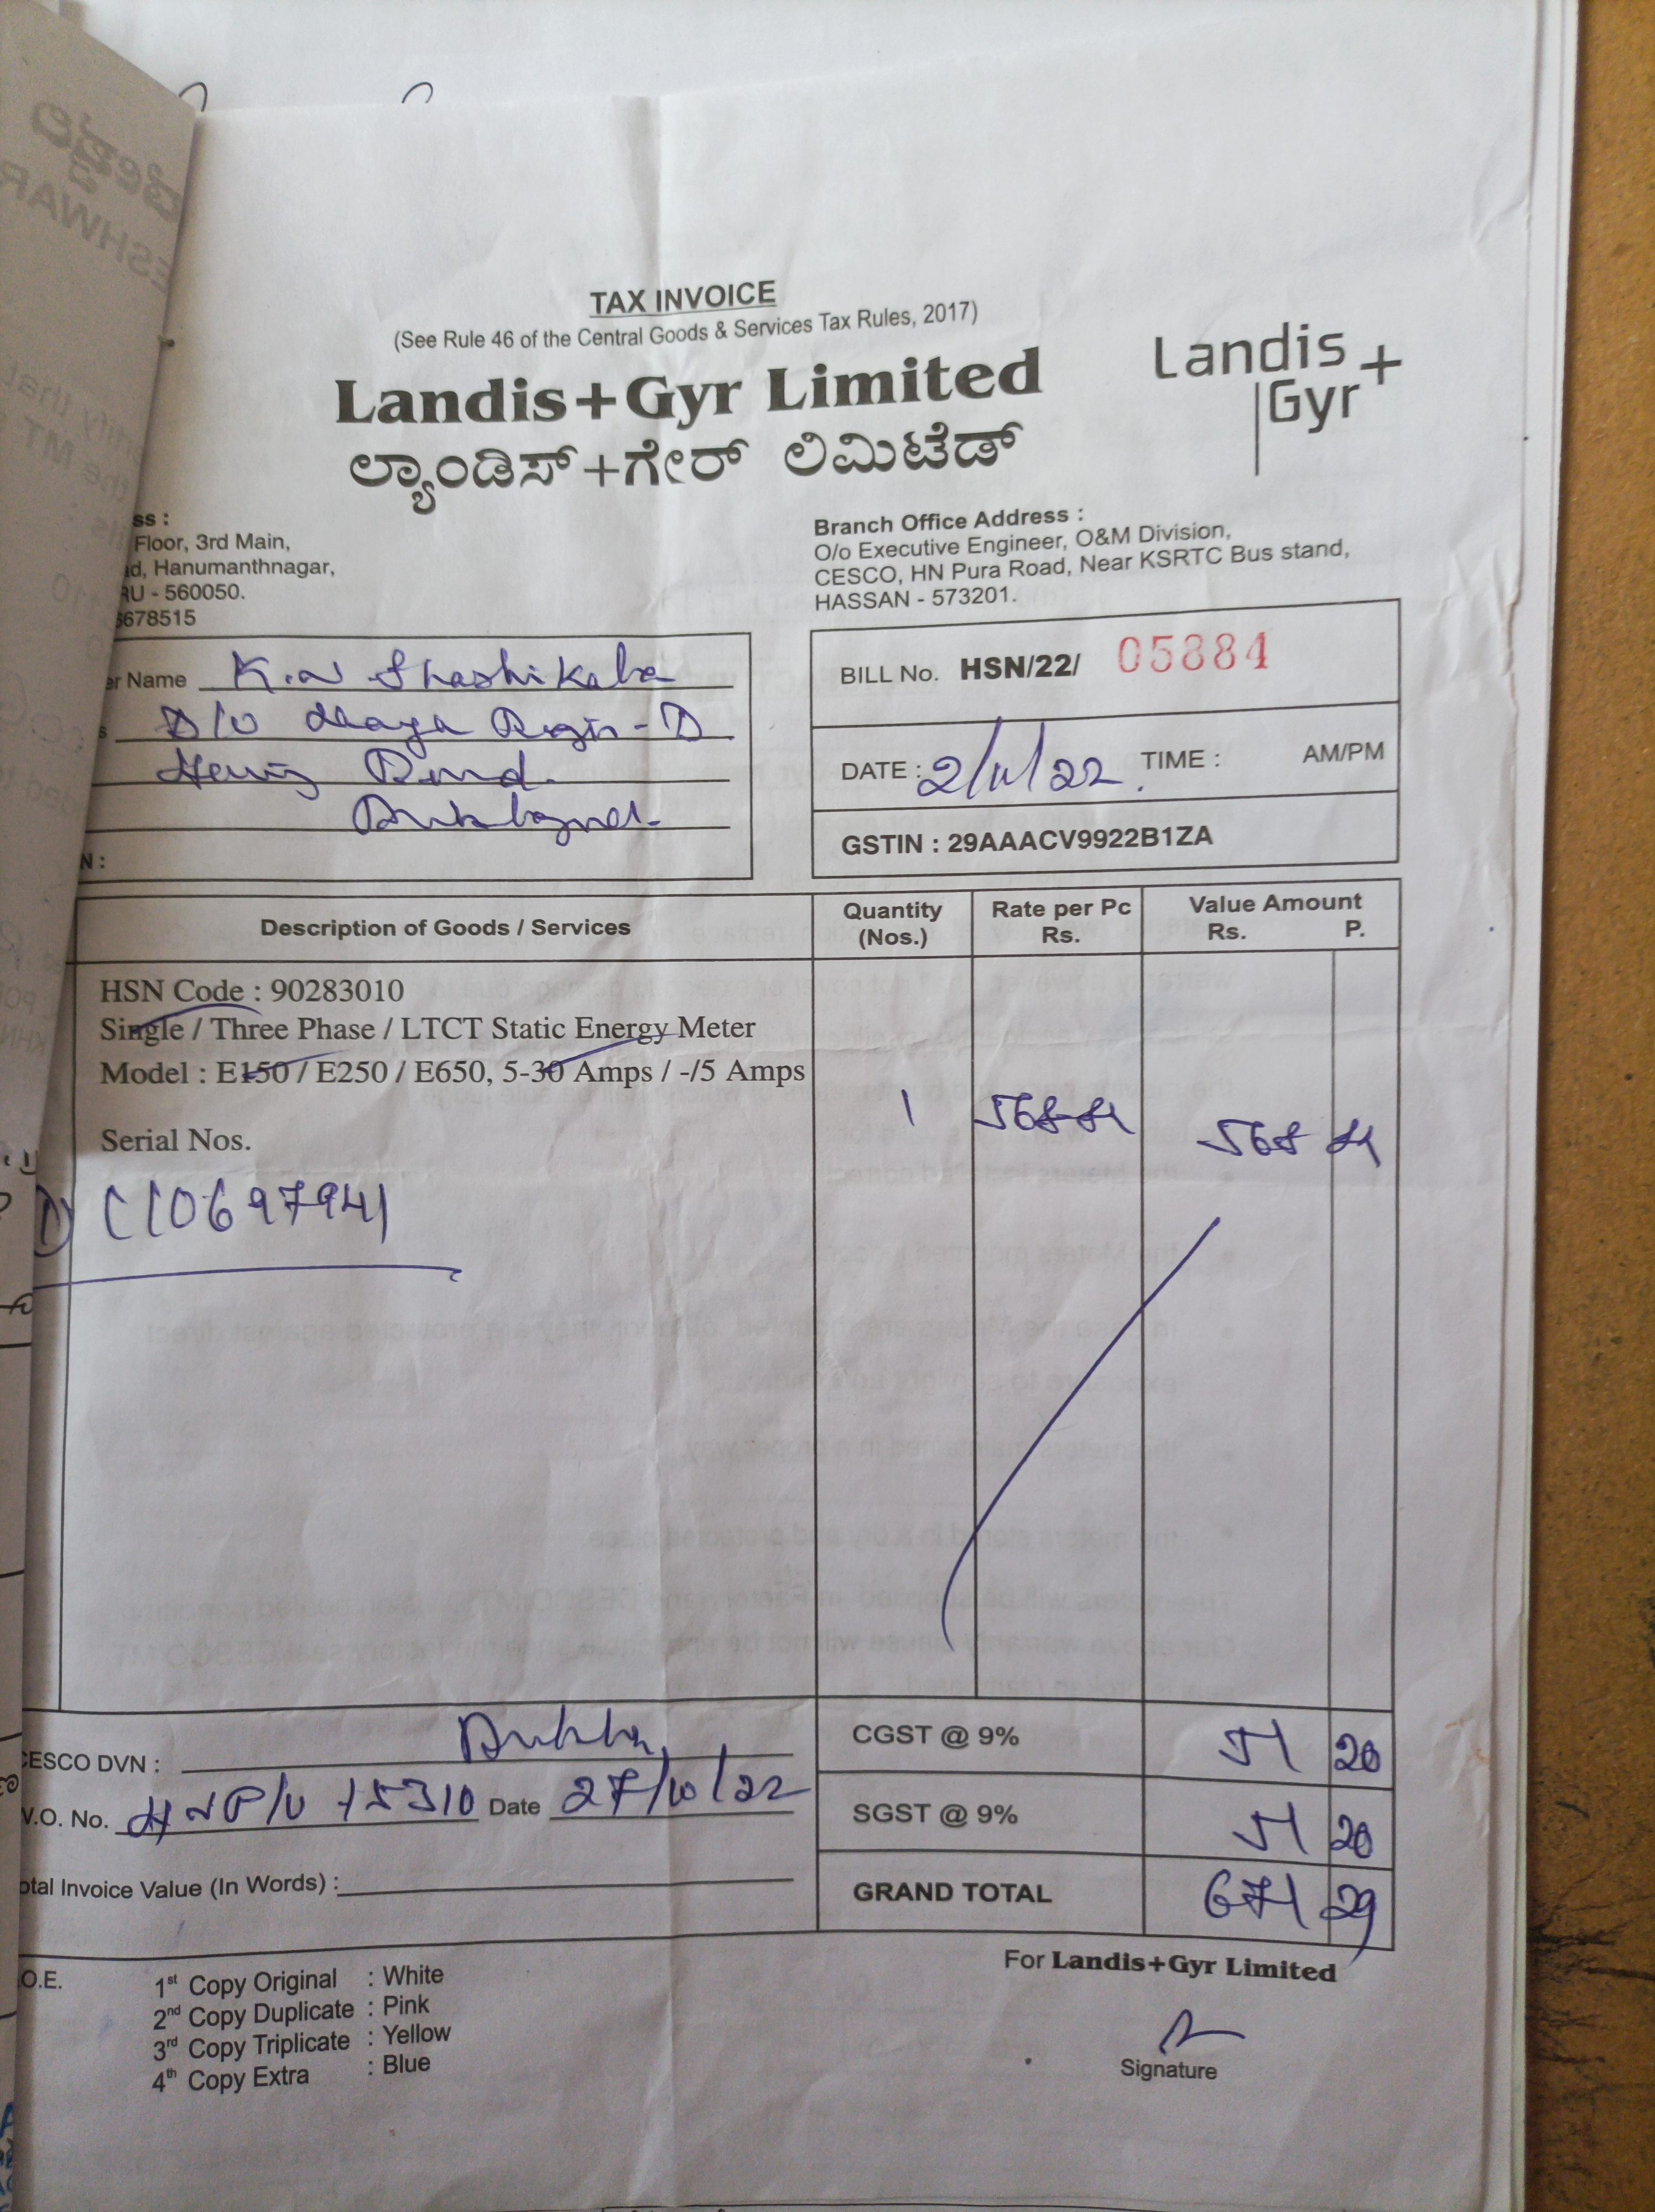 TAX INVOICE
(See Rule 46 of the Central Goods & Services Tax Rules, 2017)
Landis+Gyr Limited
ಲ್ಯಾಂಡಿಸ್+ಗೇರ್ ಲಿಮಿಟೆಡ್
Landis+
Gyr
ss :
Floor, 3rd Main,
d, Hanumanthnagar,
RU - 560050.
678515
Branch Office Address :
O/o Executive Engineer, O&M Division,
CESCO, HN Pura Road, Near KSRTC Bus stand,
HASSAN - 573201.
er Name K.N Shashikala
s D/o
N :
BILL No. HSN/22/ 05884
DATE : 2/11/22. TIME : AM/PM
GSTIN : 29AAACV9922B1ZA
Description of Goods / Services Quantity (Nos.) Rate per Pc Rs. Value Amount Rs. P.
HSN Code : 90283010
Single / Three Phase / LTCT Static Energy Meter
Model : E150 / E250 / E650, 5-30 Amps / -/5 Amps
1 568-81 568 81
Serial Nos.
1) C10697941
CESCO DVN :
CGST @ 9% 51 20
W.O. No. 15310 Date 27/10/22
SGST @ 9% 51 20
otal Invoice Value (In Words) :
GRAND TOTAL 671 29
.O.E.
1st Copy Original : White
2nd Copy Duplicate : Pink
3rd Copy Triplicate : Yellow
4th Copy Extra : Blue
For Landis+Gyr Limited
Signature